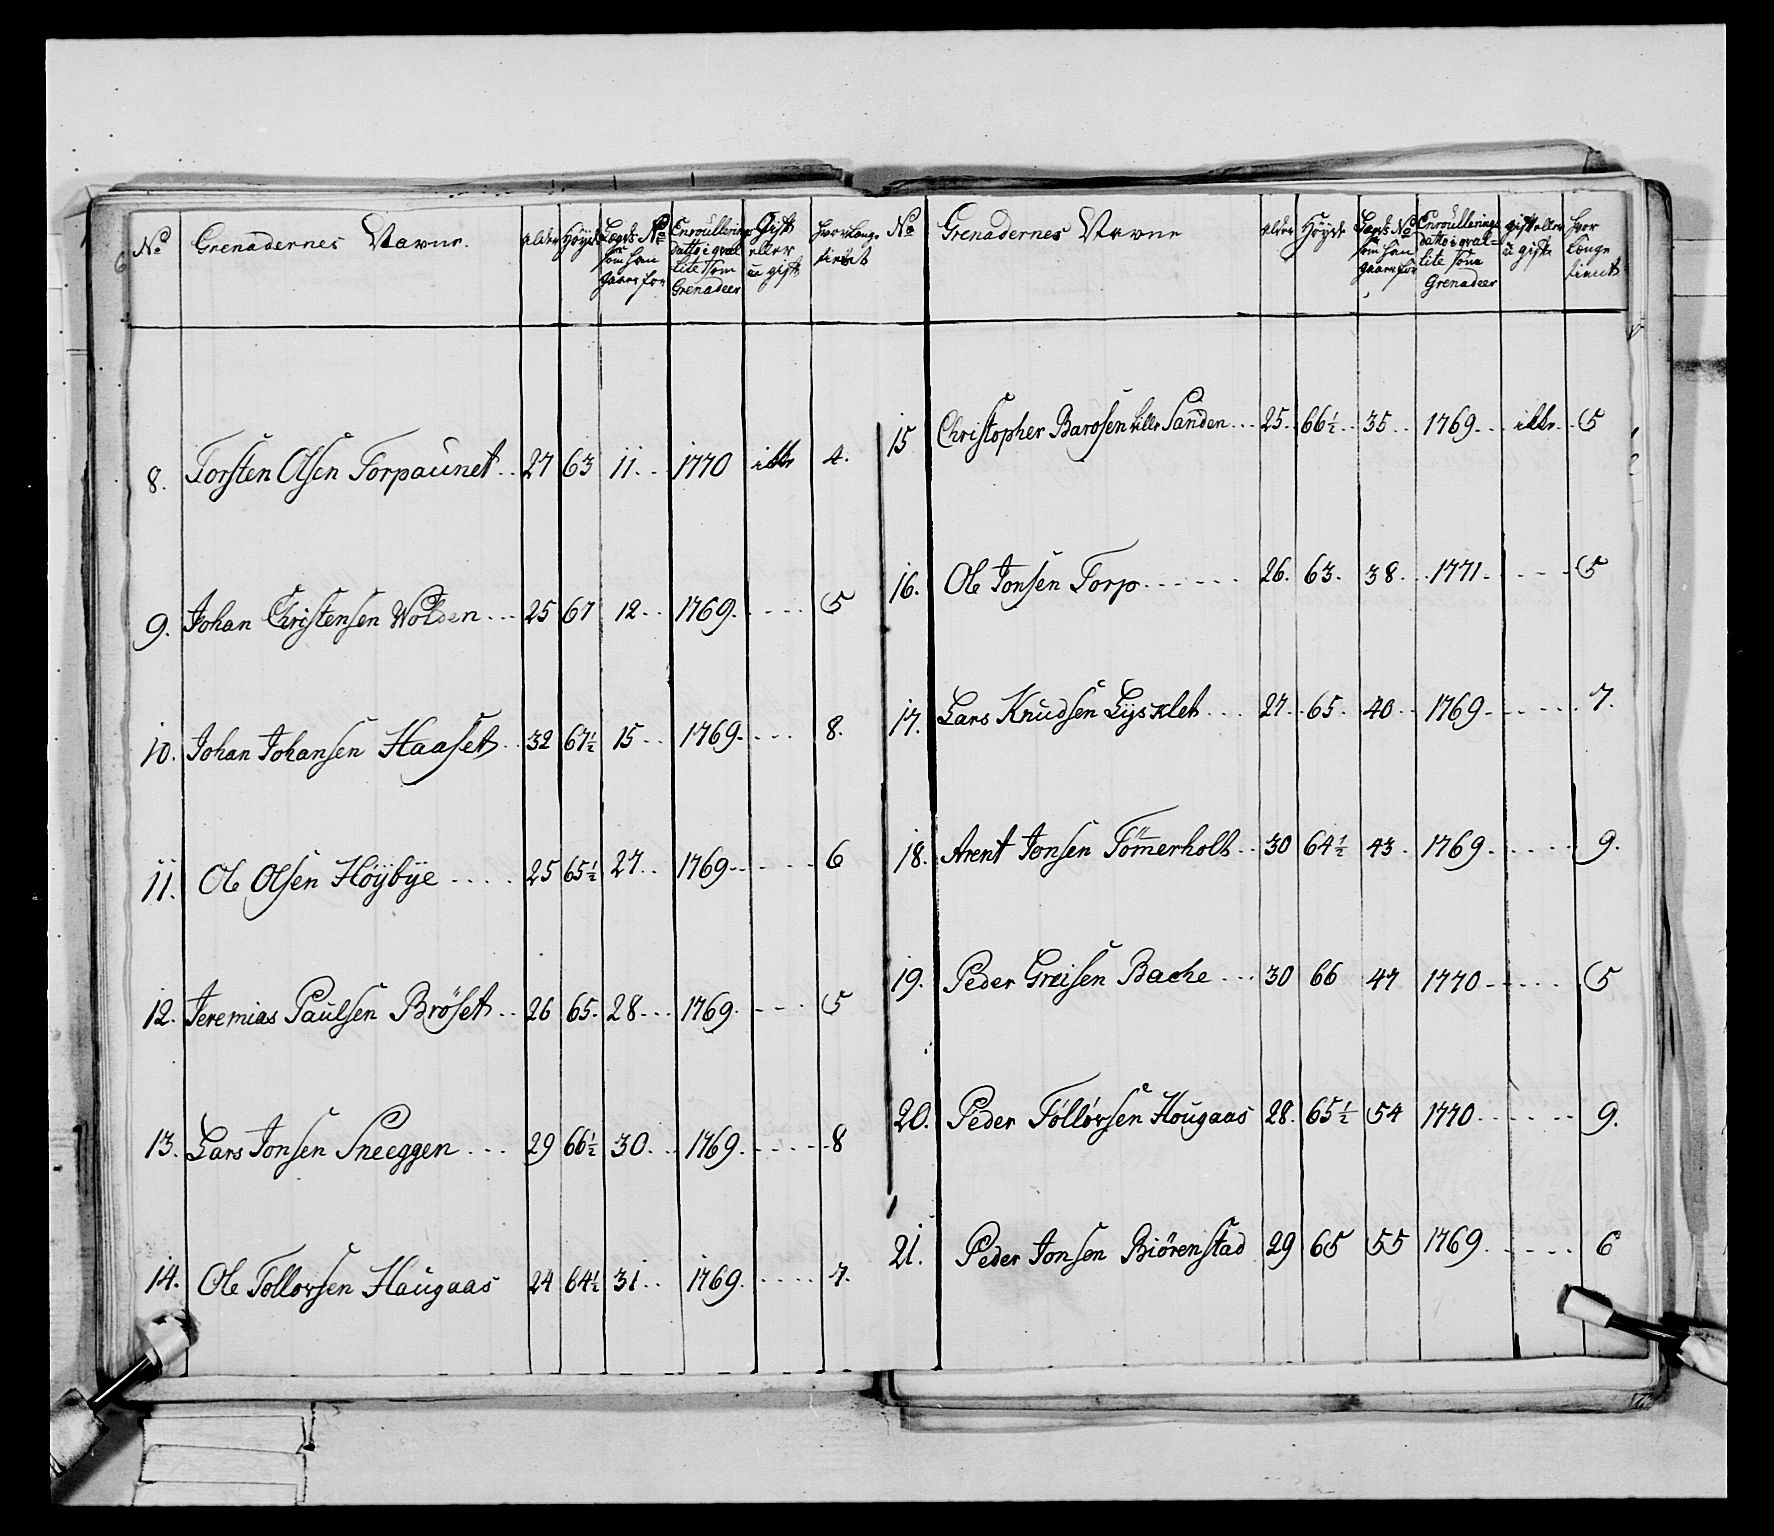 No Grenadernes Navne. alder Höyde Lægds No som han gaaer for Enroullerings datto i qvalitite som Grenadeer Gift eller u gift hvor længe tient
8. Torsten Olsen Torpaunet .. 27 63 11... 1770 ikke 4.
9. Johan Christensen Wolden ... 25 67 12.. 1769. .... 5
10. Johan Johansen Haaset .. 32 67½ 15... 1769. .... 8.
11. Ole Olsen Höÿbÿe ..... 25 65½ 27.. 1769... .... 6
12. Jeremias Paulsen Bröset .. 26 65. 28... 1769. .... 5
13. Lars Jonsen Sneeggen ... 29 66½ 30... 1769. ..... 8
14. Ole Tollorsen Haugaas 24 64½ 31.. 1769. .... 7.
No Grenadernes Navne alder Höyde Lægds No som han gaaer for Enroullerings datto i qvalitite som Grenadeer gift eller u gift hvor længe tient
15 Christopher Barosen lille Sanden ... 25. 66½.. 35.. 1769... ikke.. 5
16. Ole Jonsen Torp ...... 26. 63. 38... 1771. .... 5
17. Lars Knudsen Lÿsklet ... 27. 65. 40.. 1769. ..... 7.
18. Arent Jonsen Tömerholt .. 30 64½ 43. 1769. ..... 9.
19. Peder Greisen Bache ... 30 66 47 1770. ..... 5
20. Peder Föllörsen Hougaas 28. 65½ 54 1770. ..... 9.
21. Peder Jonsen Biörenstad 29 65 55 1769. ..... 6